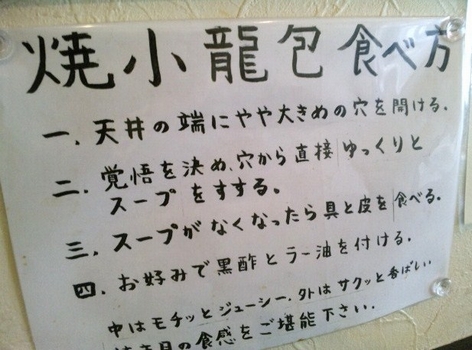 焼小龍包 食べ方
一. 天井の端にやや大きめの穴を開ける.
二. 覚悟を決め、穴から直接ゆっくりと
スープをすする。
三. スープがなくなったら具と皮を食べる.
四. お好みで黒酢とラー油を付ける.
中はモチッとジューシー. 外はサクッと香ばしい
の食感をご堪能下さい.